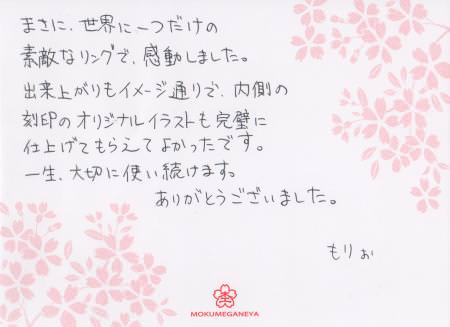 まさに、世界に一つだけの
素敵なリングで、感動しました。
出来上がりもイメージ通りで、内側の
刻印のオリジナルイラストも完璧に
仕上げてもらえてよかったです。
一生、大切に使い続けます。
ありがとうございました。
もりぉ
MOKUMEGANEYA